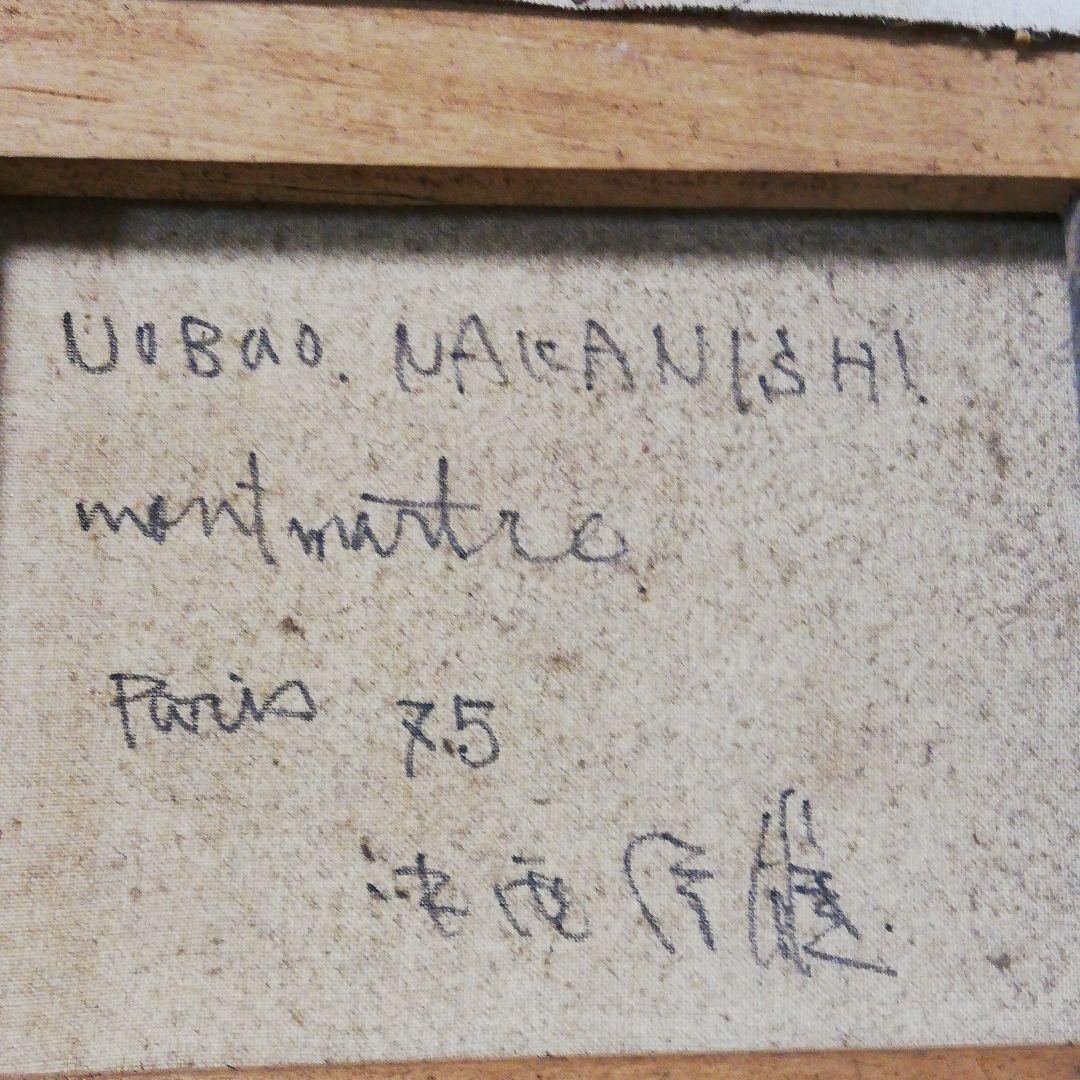 UOBUO. NAKANISHI
montmartre.
Paris 75